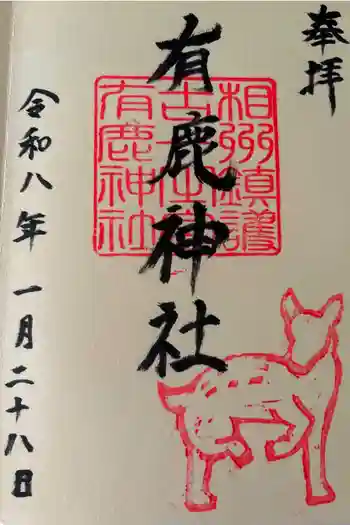 奉拝
相州鎮護
有鹿神社
有鹿神社
令和八年 一月二十八日